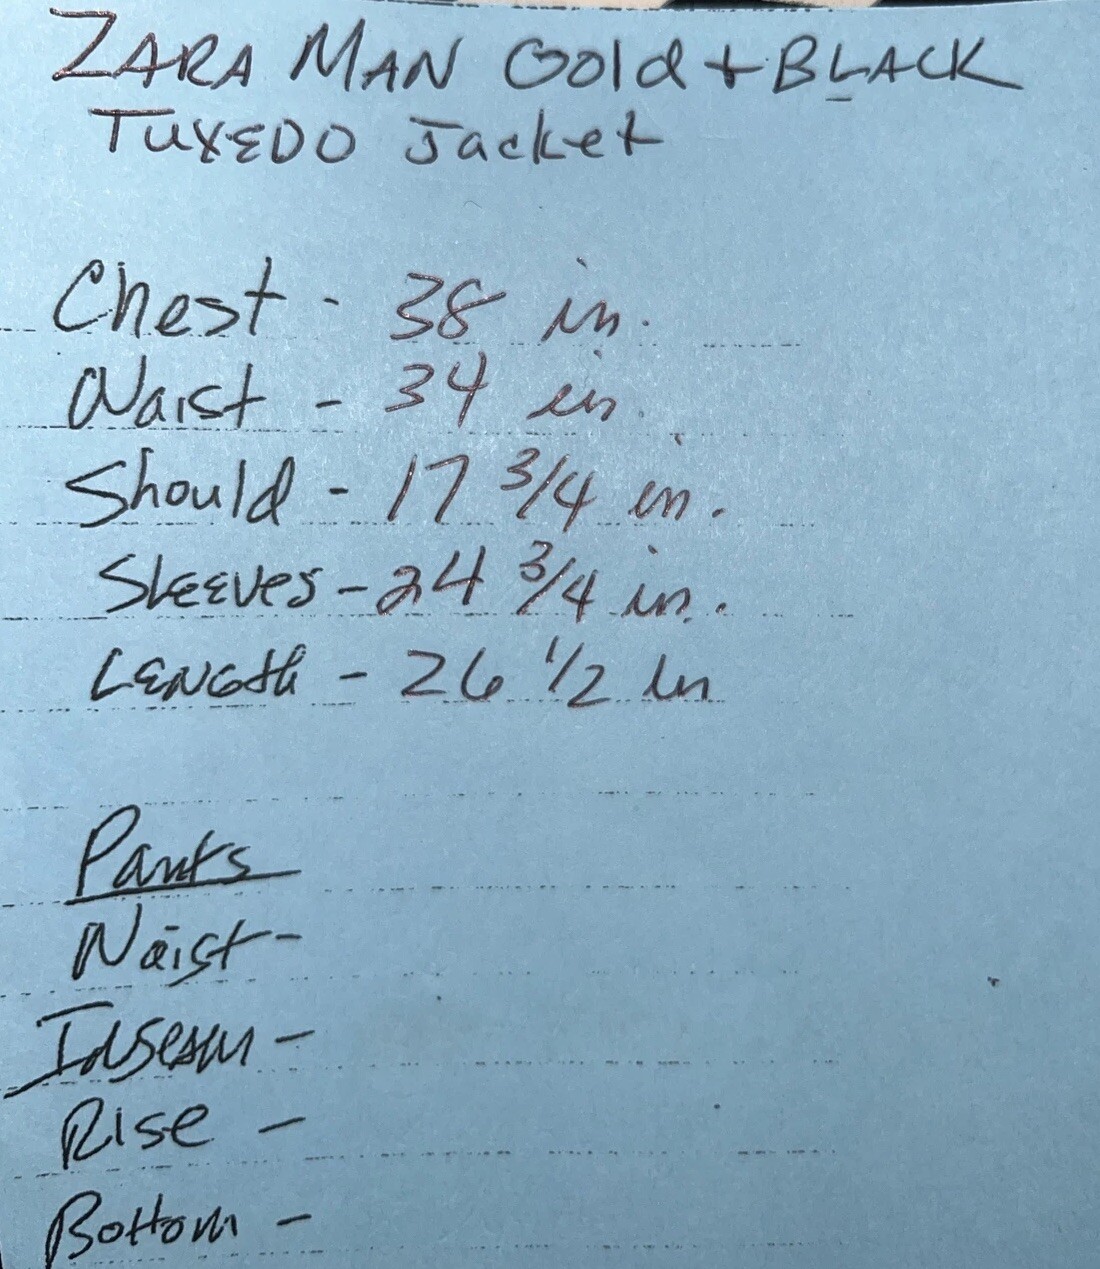 ZARA MAN Gold + BLACK
TUXEDO Jacket
Chest - 38 in.
Waist - 34 in.
Should - 17 3/4 in.
SLEEVES - 24 3/4 in.
LENGth - 26 1/2 in
Pants
Waist -
Inseam -
Rise -
Bottom -